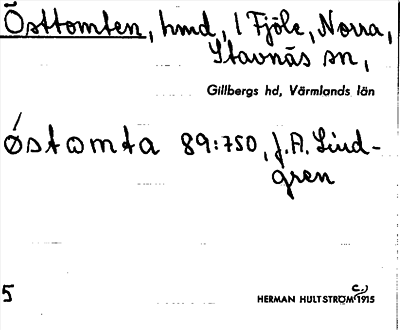 Östtomten, hmd, 1 Fjöle, Norra,
Stavnäs sn,
Gillbergs hd, Värmlands län
östomta 89:750, J.A. Lind-
gren
5
HERMAN HULTSTRÖM (C.) 1915